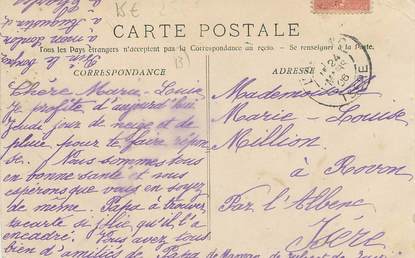 CARTE POSTALE
Tous les Pays étrangers n'acceptent pas la Correspondance au recto. — Se renseigner à la Poste.
CORRESPONDANCE
Chère Marie-Louise
je profite d'aujourd'hui
Jeudi jour de neige et de
pluie pour te faire répon
se. Nous sommes tous
en bonne santé et nous
espérons que vous en soyez
de même. Papa a trouvé
ta carte si jolie qu'il l'a
encadré. Vous avez tous
bien d'amitiés de Papa
ADRESSE
Mademoiselle
Marie-Louise
Million
à Rovon
Par l'Albenc
Isère
24
06
ISERE